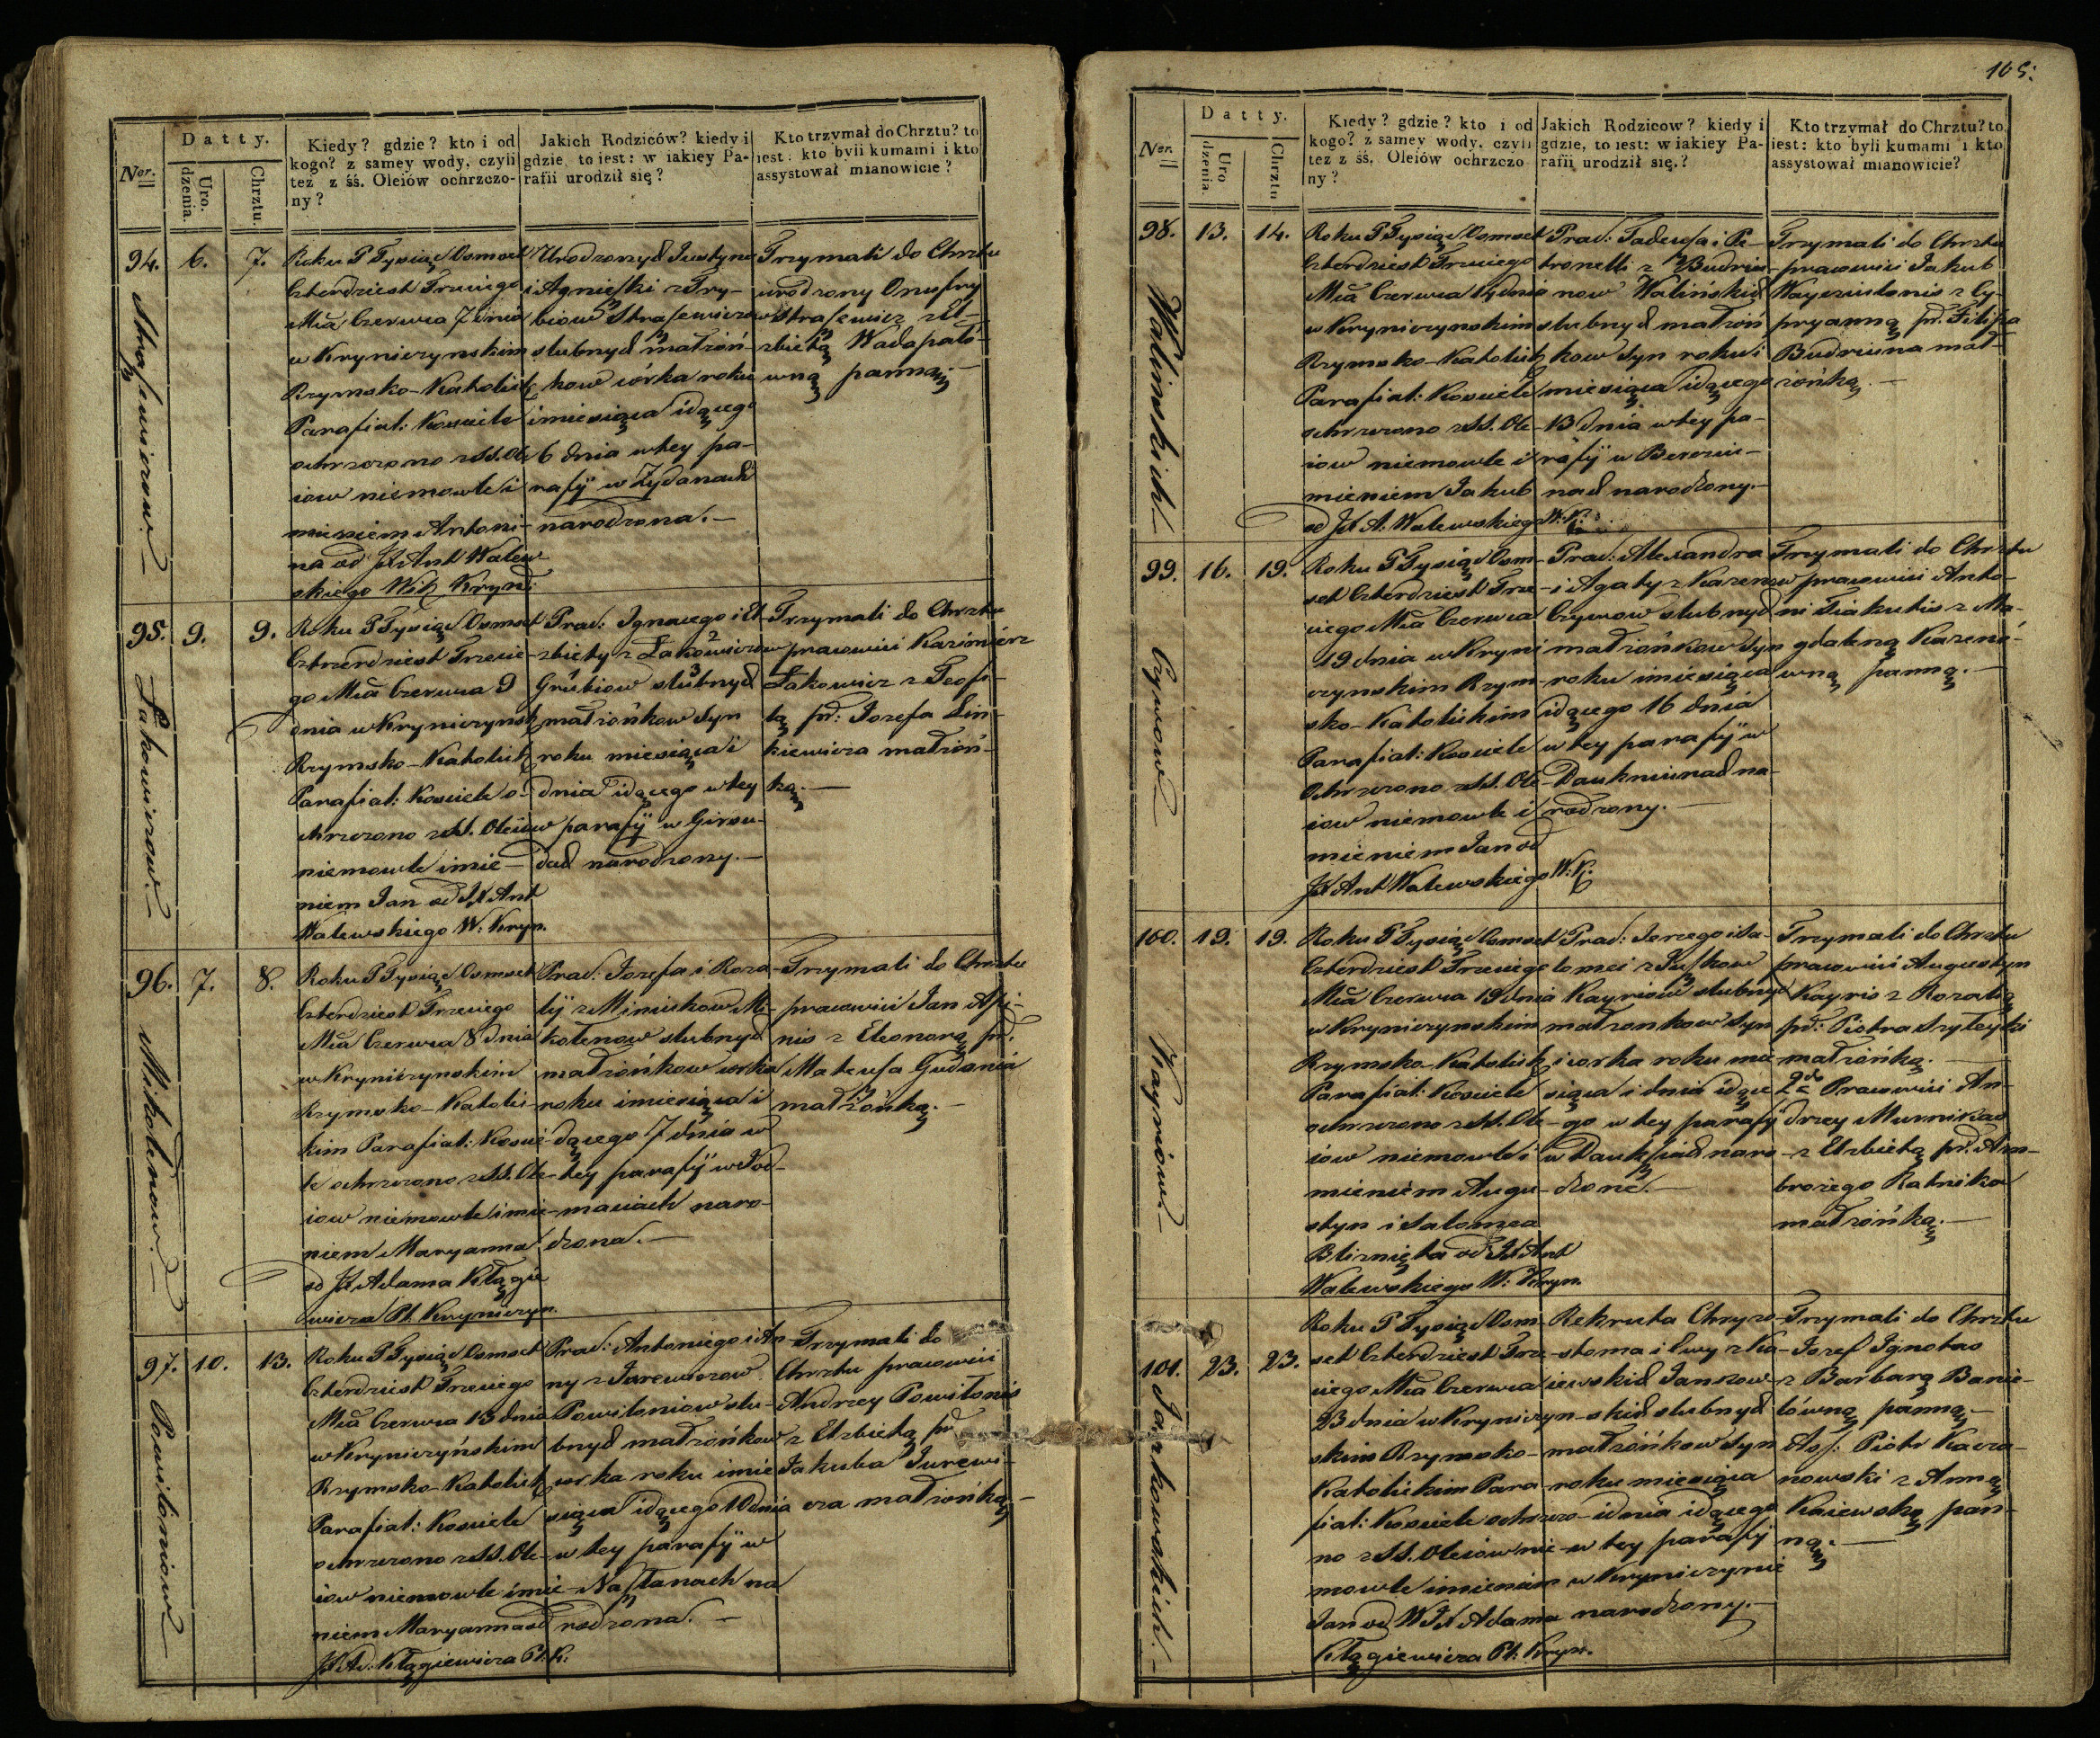 Nor.
Datty.
Uro-
dzenia.
Chrztu.
Kiedy? gdzie? kto i od
kogo? z samey wody, czyli
też z śś. Oleiów ochrzczo-
ny?
Jakich Rodziców? kiedy i
gdzie, to iest: w iakiey Pa-
rafii urodził się?
Kto trzymał do Chrztu? to
iest: kto byli kumami i kto
assystował mianowicie?
94.
Straszewiczow.
6.
7.
Roku P Tysiąc Osmset
Czterdziest Trzeciego
Mca Czerwca 7 dnia
w Kryniczynskim
Rzymsko-Katolick
Parafial: Kosciele
ochrzczono z SS. Ole
iow niemowle i
mieniem Antoni-
na od JX Ant Walew
skiego Wik Kryn:
Urodzonych Justyna
i Agnieszki z Gry-
biow Straszewiczow
slubnych małżoń-
kow córka roku
i miesiąca idącego
6 dnia w tey pa-
rafij w Żydanach
narodzona.
Trzymali do Chrztu
urodzony Onufry
Straszewicz z El-
zbietą Wadapało-
wną panną.
95.
Łakowiczow.
9.
9.
Roku P Tysiąc Osmset
Czterdziest Trzecie-
go Mca Czerwca 9
dnia w Kryniczynsk
Rzymsko-Katolick
Parafial: Kosciele o-
chrzczono z SS. Oleiow
niemowle imie-
niem Jan od JX Ant
Walewskiego W: Kryn.
Prac: Ignacego i El-
zbiety z Łakowiczow
Grubiow slubnych
małżońkow syn
roku miesiąca i
dnia idącego w tey
parafij w Girow-
dach narodzony.
Trzymali do Chrztu
pracowici Kazimierz
Łakowicz z Teofi-
lą pr: Jozefa Lin-
kiewicza małżoń-
ką.
96.
Mikolenow.
7.
8.
Roku P Tysiąc Osmset
Czterdziest Trzeciego
Mca Czerwca 8 dnia
w Krynicżynskim
Rzymsko-Katolic-
kim Parafial: Koscie-
le ochrzczono z SS. Ole-
iow niemowle imie-
niem Maryanna
od JX Adama Kłągie
wicza Pl. Krynicżyn.
Prac: Jozefa i Roza-
lij z Miniskow Mi-
kolenow slubnych
małżońkow corka
roku i miesiąca i
dącego 7 dnia w
tey parafij w Jod-
maciach naro-
dzona.
Trzymali do Chrztu
pracowici Jan Aszi-
nis z Eleonorą pr.
Mateusza Gudania
małżońką.
97.
Powiłoniow
10.
13.
Roku P Tysiąc Osmset
Czterdziest Trzeciego
Mca Czerwca 13 dnia
w Krynicżyńskim
Rzymsko-Katolick
Parafial: Kosciele
ochrzczono z SS. Ole-
iow niemowle imie-
niem Maryanna od
JX Ad. Kłągiewicza Pl. K.
Prac: Antoniego i An-
ny z Jurewiczow
Powiloniow slu-
bnych małżońkow
corka roku i mie
siąca idącego 10 dnia
w tey parafij w
Nasztanach na
rodzona.
Trzymali do
Chrztu pracowici
Andrzey Powiłonis
z Elzbietą pr
Jakuba Jurewi-
cza małżońką
105.
Nor.
Datty.
Uro
dzenia.
Chrztu
Kiedy? gdzie? kto i od
kogo? z samey wody, czyli
też z śś. Oleiów ochrzczo
ny?
Jakich Rodzicow? kiedy i
gdzie, to iest: w iakiey Pa-
rafii urodził się.?
Kto trzymał do Chrztu? to
iest: kto byli kumami i kto
assystował mianowicie?
98.
Walinskich
13.
14.
Roku P Tysiąc Osmset
Czterdziest Trzeciego
Mca Czerwca 14 dnia
w Krynicżynskim
Rzymsko-Katolick
Parafial: Kosciele
ochrzczono z SS. Ole-
iow niemowle i
mieniem Jakub
od JX A: Walewskiego W: K:
Prac: Tadeusza i Pe-
tronelli z Budriu-
now Walińskich
slubnych małżoń
kow syn roku i
miesiąca idącego
13 dnia w tey pa-
rafij w Berzini-
nach narodzony.
Trzymali do Chrztu
pracowici Jakub
Wayczsztonis z Cy-
pryanną pr. Filipa
Budriuna mał-
żońką.
99.
Czywow
16.
19.
Roku P Tysiąc Osm-
set Czterdziest Trze-
ciego Mca Czerwca
19 dnia w Kryni
czynskim Rzym-
sko-Katolickim
Parafial: Kosciele
ochrzczono z SS. Ole-
iow niemowle i
mieniem Jan od
JX Ant Walewskiego W: K:
Prac: Alexandra
i Agaty z Karenow
Czywow slubnych
małżońkow syn
roku i miesiąca
idącego 16 dnia
w tey parafij w
Daukniunach na-
rodzony.
Trzymali do Chrztu
pracowici Anto-
ni Fiakutis z Ma-
gdaleną Kareno-
wną panną.
100.
Kayriow
19.
19.
Roku P Tysiąc Osmset
Czterdziest Trzeciego
Mca Czerwca 19 dnia
w Krynicżynskim
Rzymsko-Katolick
Parafial: Kosciele
ochrzczono z SS. Ole-
iow niemowle i
mieniem Augu-
styn i Salomea
Bliznięta od JX Ant
Walewskiego W: Kryn.
Prac: Jerzego i Sa-
lomei z Juszkow
Kayriow slubnych
małżonkow syn
i corka roku mie
siąca i dnia idące
go w tey parafij
w Daukszach naro-
dzone.
Trzymali do Chrztu
pracowici Augustyn
Kayris z Rozalią
pr: Piotra Szyleyki
małżońką.
2do Pracowici An-
drzey Murnikas
z Elzbietą pr. Am-
brożego Ratnika
małżońką.
101.
Jankowskich.
23.
23.
Roku P Tysiąc Osm-
set Czterdziest Trze-
ciego Mca Czerwca
23 dnia w Krynicżyn-
skim Rzymsko-
Katolickim Para-
fial: Kosciele ochrzczo-
no z SS. Oleiow nie-
mowle imieniem
Jan od WJX Adama
Kłągiewicza Pl: Kryn.
Rekruta Chryzo-
stoma i Ewy z Ka-
iewskich Jankow-
skich slubnych
małżóńkow syn
roku miesiąca
i dnia idącego
w tey parafij
w Krynicżynie
narodzony.
Trzymali do Chrztu
Jozef Ignotas
z Barbarą Banie-
lówną panną.
Ass: Piotr Kacza-
nowski z Anną
Kaiewską pan-
ną.